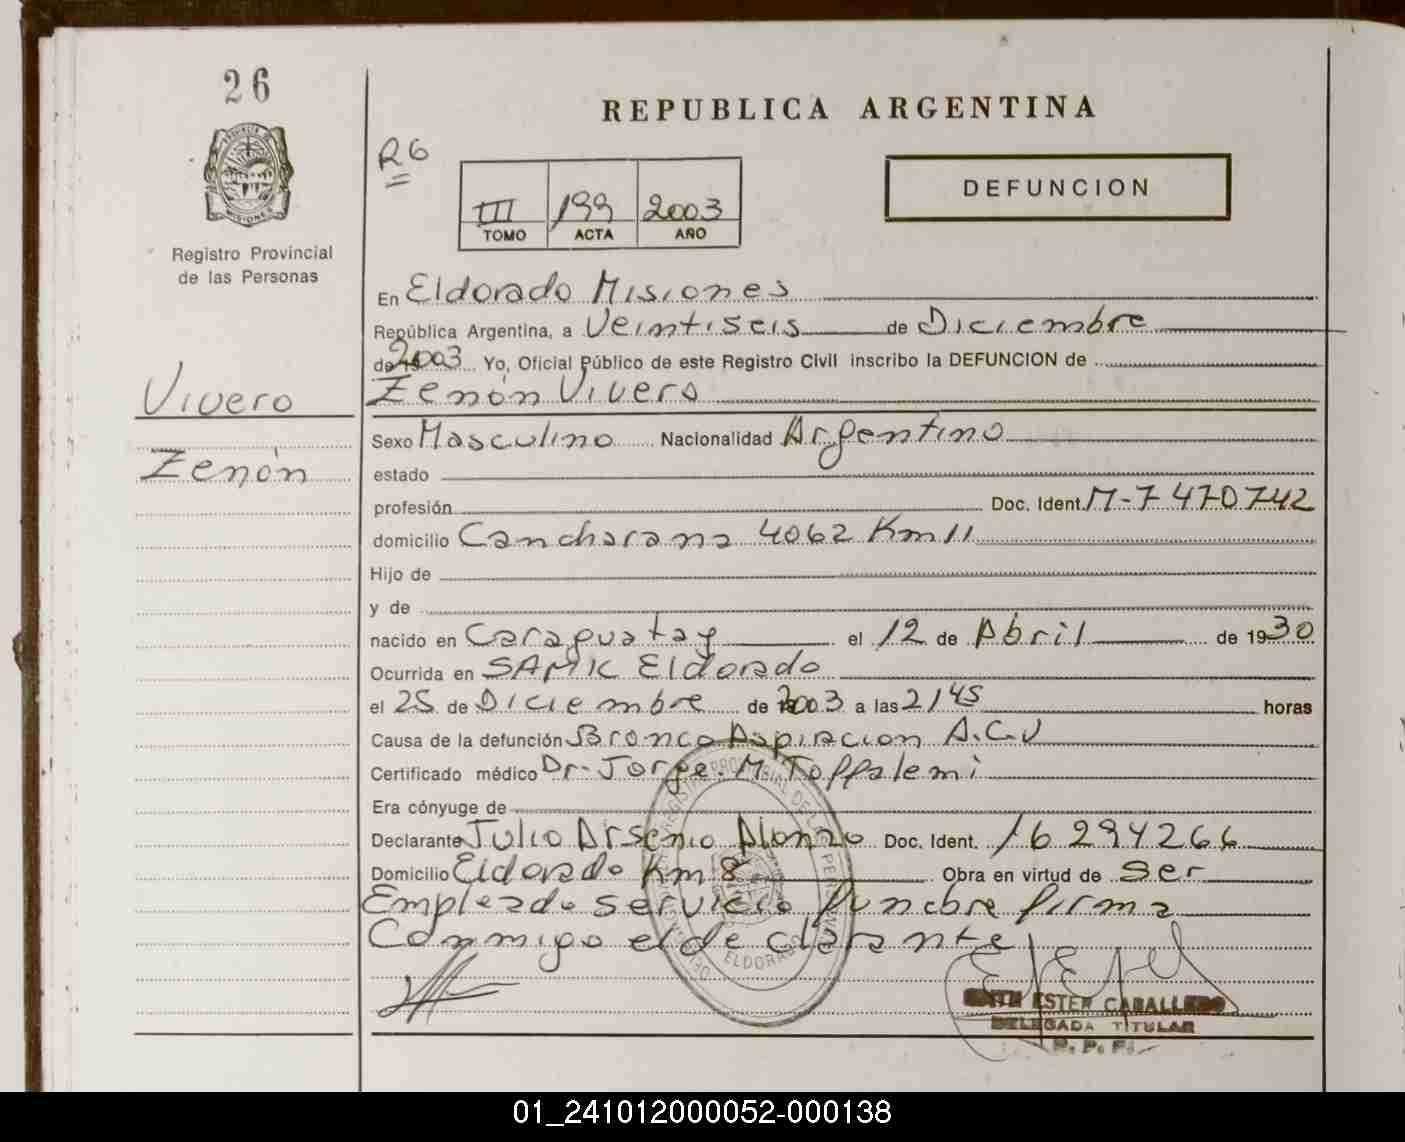 26
REPUBLICA ARGENTINA
R6
DEFUNCION
III 199 2003
TOMO ACTA AÑO
PROVINCIA DE
MISIONES
Registro Provincial
de las Personas
En Eldorado Misiones
República Argentina, a Veintiseis de Diciembre
de 2003 Yo, Oficial Público de este Registro Civil inscribo la DEFUNCION de
Zenón Vivero
Vivero
Zenón
Sexo Masculino Nacionalidad Argentino
estado
profesión Doc. Ident. M-7470742
domicilio Cancharana 4062 Km 11
Hijo de
y de
nacido en Caraguatay el 12 de Abril de 1930
Ocurrida en SAMIC Eldorado
el 25 de Diciembre de 2003 a las 2145 horas
Causa de la defunción Bronco Aspiracion A.C.V
Certificado médico Dr. Jorge. M Toffalemi
Era cónyuge de
Declarante Julio Arsenio Alonzo Doc. Ident. 16294266
Domicilio Eldorado Km 8 Obra en virtud de ser
Empleado servicio funebre firma
Conmigo el declarante
ELDORADO
ESTER CABALLERO
DELEGADA TITULAR
R. P. P.
01_241012000052-000138